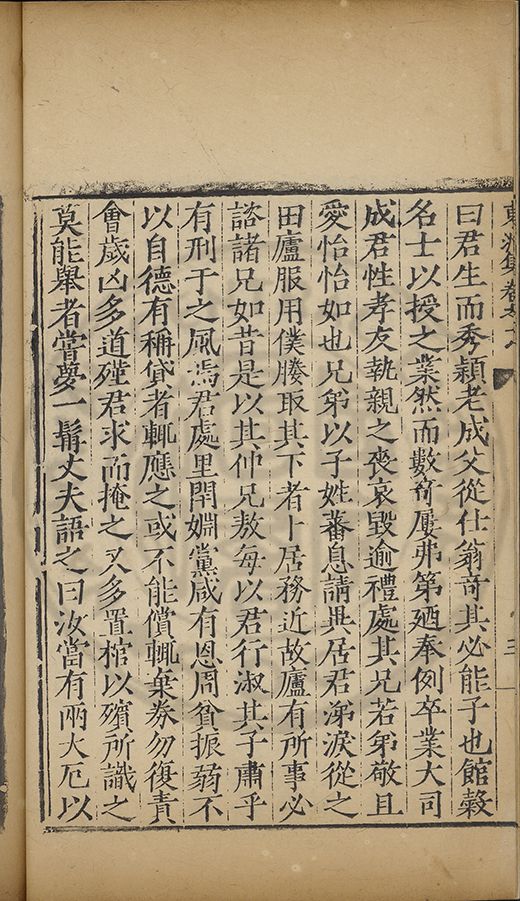 曰君生而秀穎老成父從仕翁奇其必能子也館穀
名士以授之業然而數奇屢弗第廼奉例卒業大司
成君性孝友執親之喪哀毀逾禮處其兄若弟敬且
愛怡怡如也兄弟以子姓蕃息請異居君涕淚從之
田廬服用僕媵取其下者卜居務近故廬有所事必
諮諸兄如昔是以其仲兄敖每以君行淑其子肅乎
有刑于之風焉君處里閈婣黨咸有恩周貧振弱不
以自德有稱貸者輒應之或不能償輒棄券勿復責
會歲凶多道殣君求而掩之又多置棺以殯所識之
莫能舉者嘗夢一髯丈夫語之曰汝當有兩大厄以